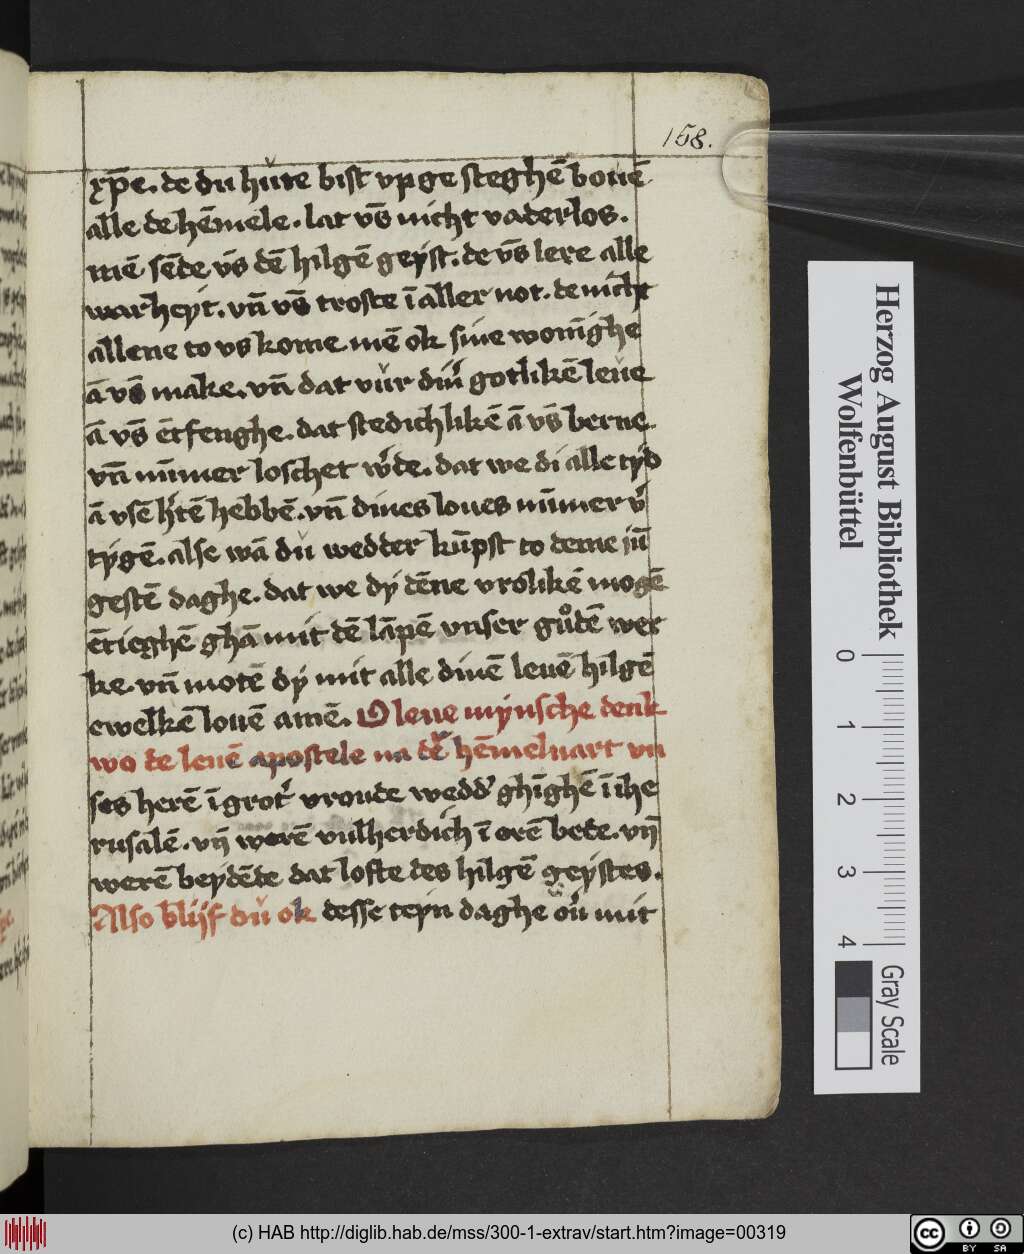 158.
xp̄e. de du hu̇te bist vpge steghē bouē
alle de hēmele. lat vs̄ nicht vaderlos.
mē sēde vs̄ dē hilgē geÿst. de vs̄ lere alle
warheyt. vn̄ vs̄ troste ī aller not. de nicht
allene to vs kome mē ok sine wonīghe
ā vs̄ make. vn̄ dat vu̇r din̾ gotlikē leue
ā vs̄ ētfenghe. dat stedichlikē ā vs̄ berne.
vn̄ nūmer loschet w̾de. dat we di alle tÿd
ā vsē h̾tē hebbē. vn̄ dines loues nūmer v̾
tÿgē. alse wā du̇ wedder kūpst to deme jū
gestē daghe. dat we dÿ dēne vrolikē mogē
ētieghē ghā mit dē lāpē vnser gůdē wer
ke. vn̄ motē dÿ mit alle dinē leuē hilgē
ewelkē louē amē. O leue mÿnsche denk
wo de leuē apostele na d̾e hēmeluart vn
ses herē ī grot̾ vroude wedd̾ ghīghē ī ihe
rusalē. vn̄ werē vulherdich ī erē bede. vn̄
werē beÿdēde dat lofte des hilgē geÿstes.
Also blijf du̇ ok desse teyn daghe ou̾ mit
Herzog August Bibliothek
Wolfenbüttel
0 1 2 3 4
Gray Scale
(c) HAB http://diglib.hab.de/mss/300-1-extrav/start.htm?image=00319
cc BY SA